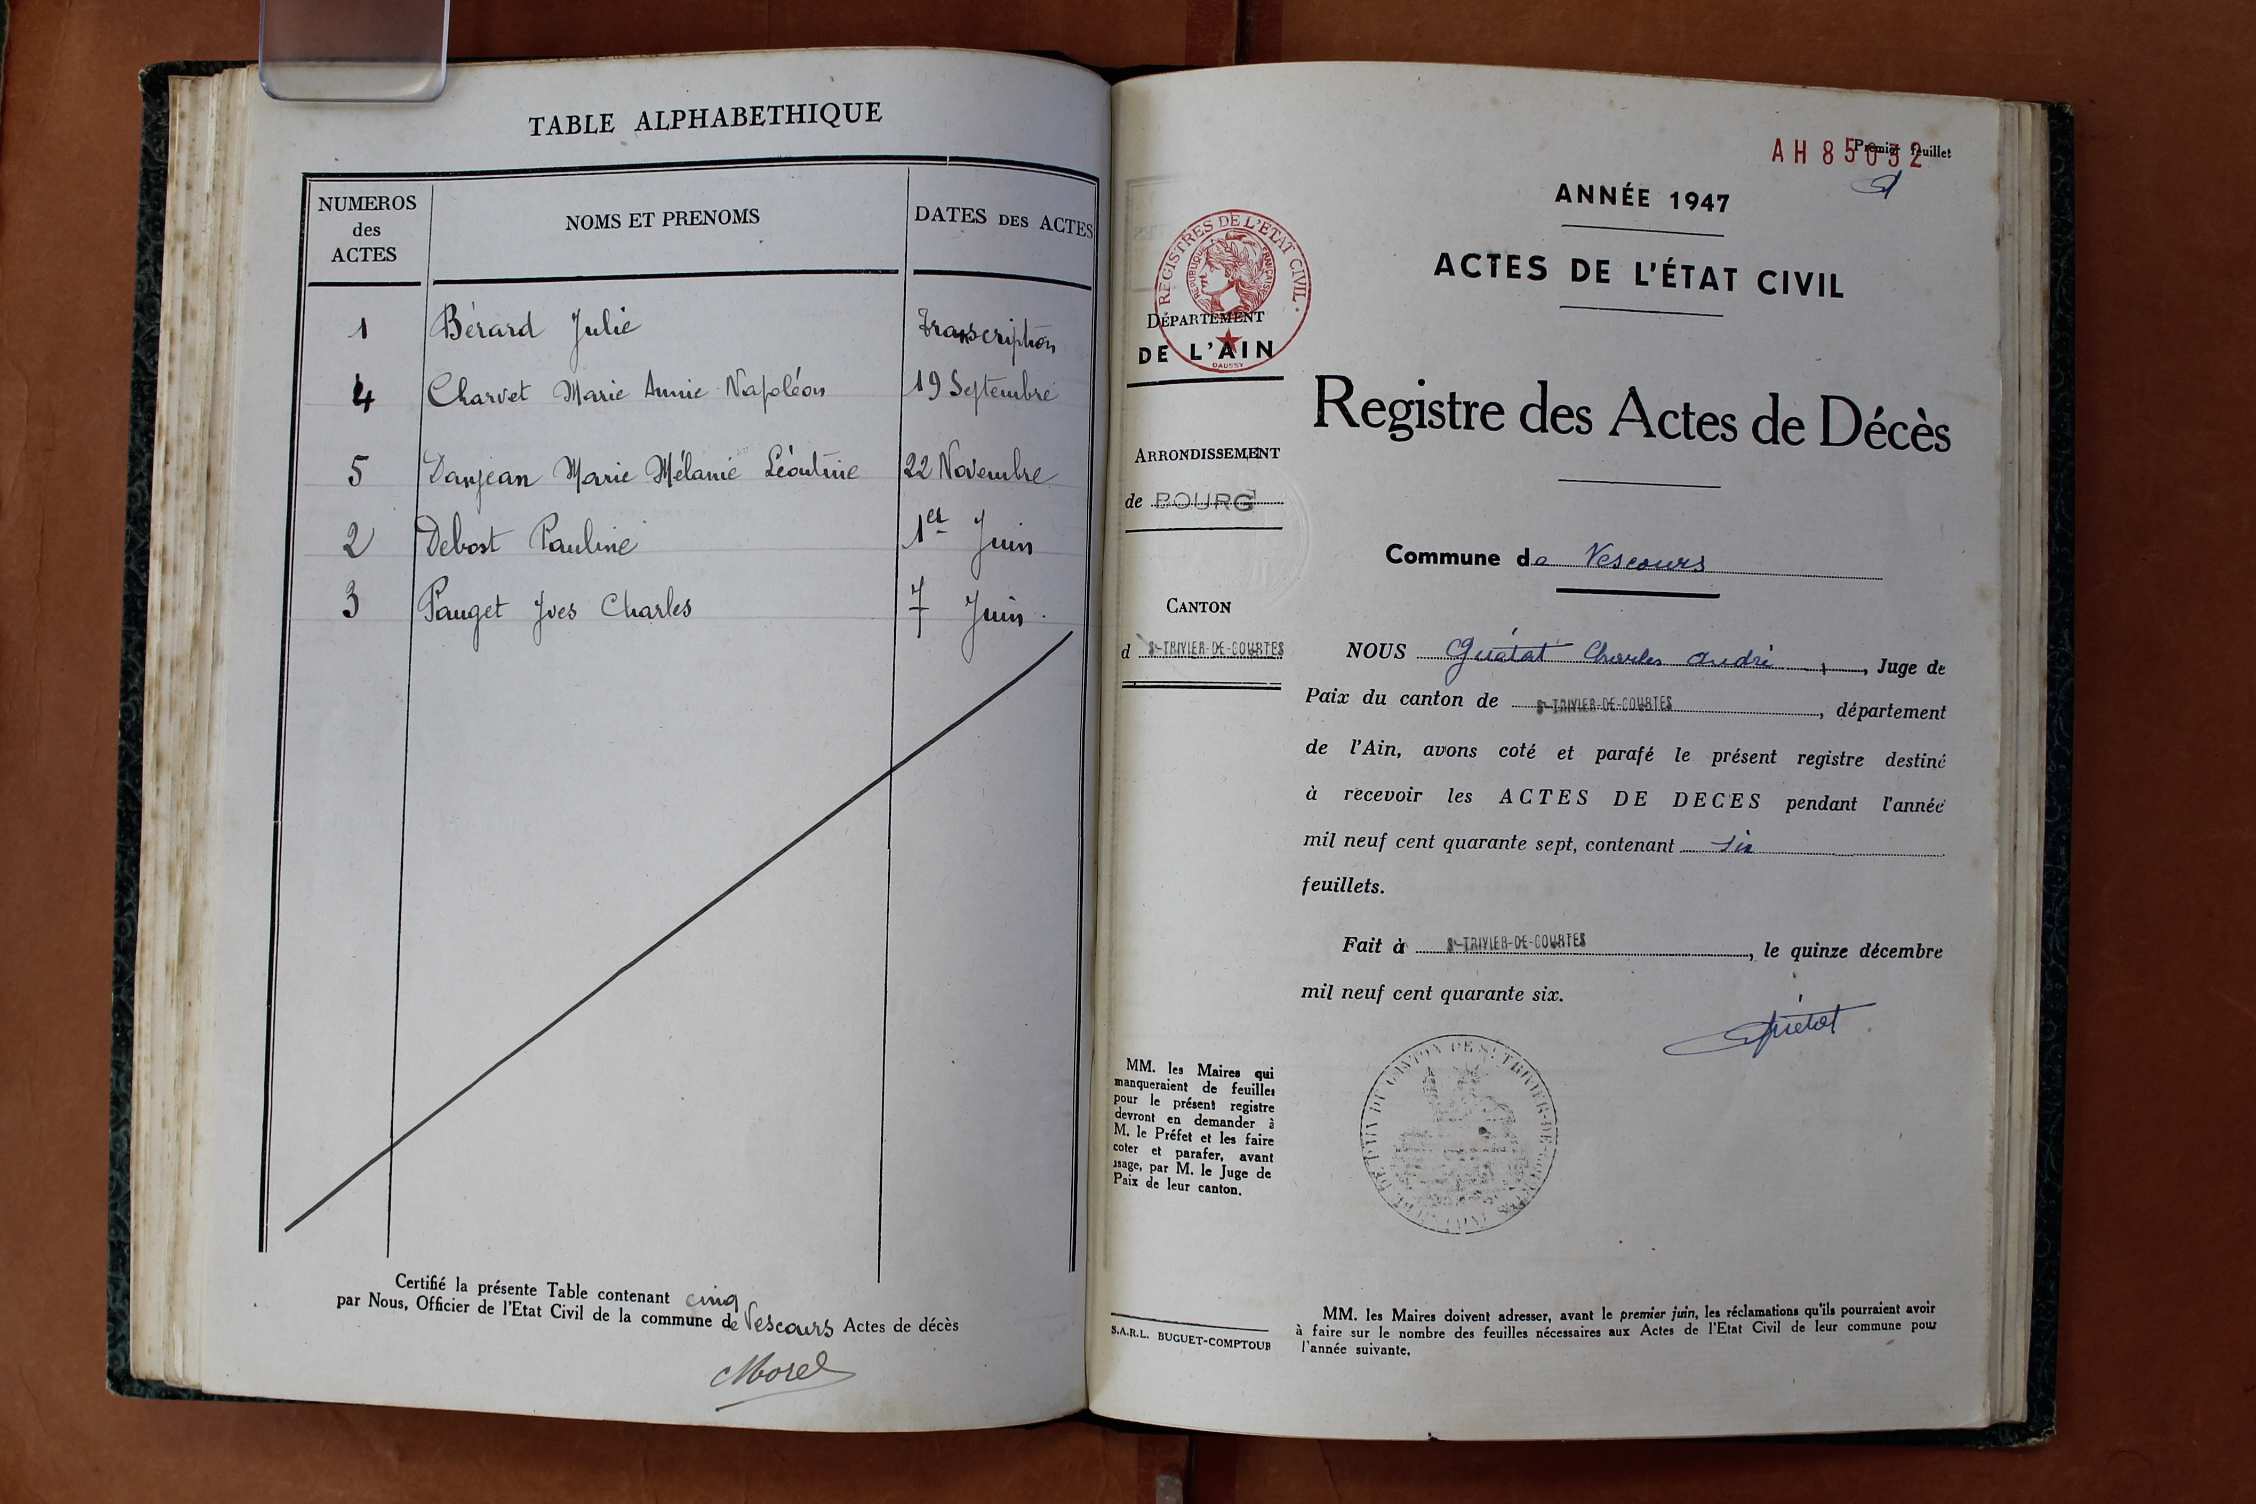 TABLE ALPHABETHIQUE
NUMEROS des ACTES
NOMS ET PRENOMS
DATES DES ACTES
1 Bérard Julie Transcription
4 Charvet Marie Annie Napoléon 19 Septembre
5 Danjean Marie Mélanie Léontine 22 Novembre
2 Debost Pauline 1er Juin
3 Pauget Yves Charles 7 Juin
Certifié la présente Table contenant cinq
par Nous, Officier de l'Etat Civil de la commune de Vescours Actes de décès
Morel
AH 85032
Premier feuillet
ANNÉE 1947
ACTES DE L'ÉTAT CIVIL
REGISTRES DE L'ETAT CIVIL
REPUBLIQUE FRANÇAISE
DAUSSY
DÉPARTEMENT
DE L'AIN
Registre des Actes de Décès
ARRONDISSEMENT
de BOURG
Commune de Vescours
CANTON
d St-TRIVIER-DE-COURTES
NOUS Guétat Charles André, Juge de
Paix du canton de St-TRIVIER-DE-COURTES, département
de l'Ain, avons coté et parafé le présent registre destiné
à recevoir les ACTES DE DECES pendant l'année
mil neuf cent quarante sept, contenant six
feuillets.
Fait à St-TRIVIER-DE-COURTES, le quinze décembre
mil neuf cent quarante six.
Guétat
MM. les Maires qui
manqueraient de feuilles
pour le présent registre
devront en demander à
M. le Préfet et les faire
coter et parafer, avant
usage, par M. le Juge de
Paix de leur canton.
S.A.R.L. BUGUET-COMPTOUR
MM. les Maires doivent adresser, avant le premier juin, les réclamations qu'ils pourraient avoir
à faire sur le nombre des feuilles nécessaires aux Actes de l'Etat Civil de leur commune pour
l'année suivante.